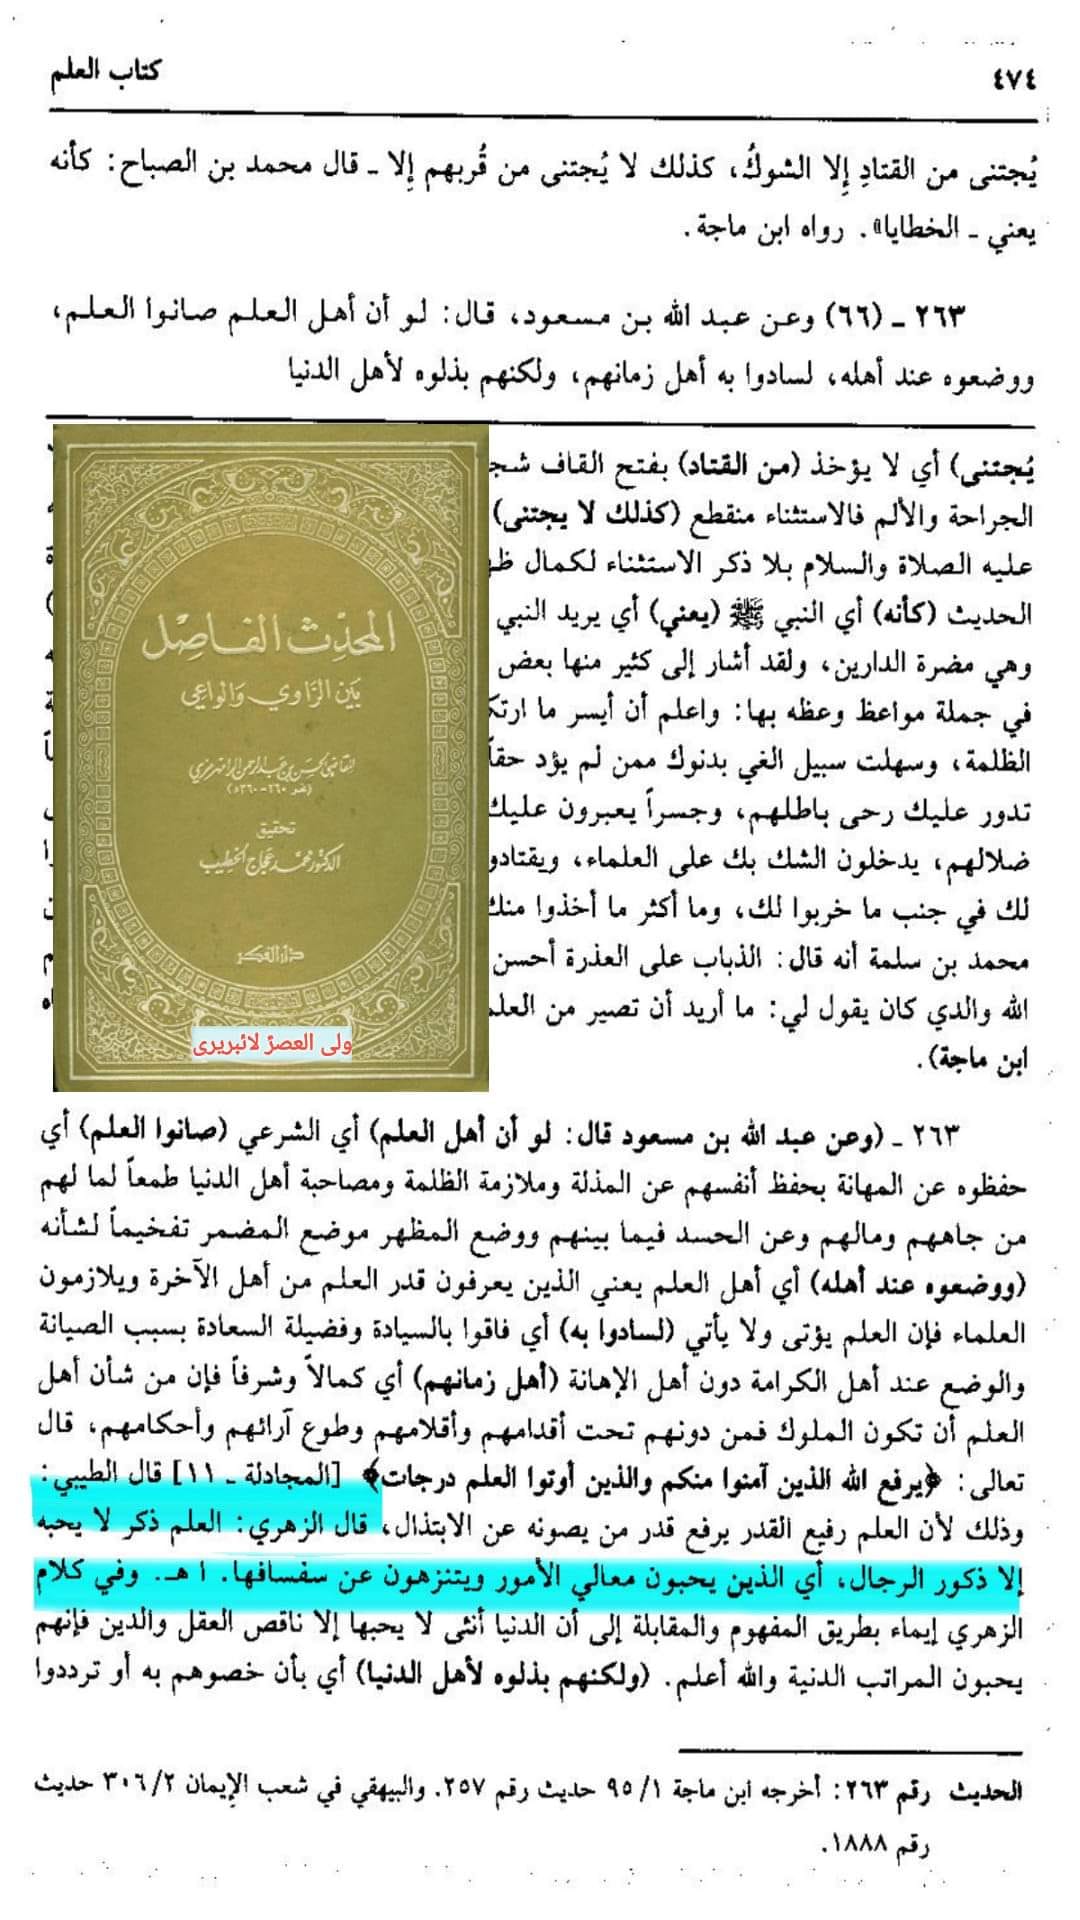 ٤٧٤
كتاب العلم
يُجتنى من القتادِ إِلا الشوكُ، كذلك لا يُجتنى من قُربهم إِلا ـ قال محمد بن الصباح: كأنه
يعني ـ الخطايا». رواه ابن ماجة.
٢٦٣ ـ (٦٦) وعن عبد الله بن مسعود، قال: لو أن أهل العلم صانوا العلم،
ووضعوه عند أهله، لسادوا به أهل زمانهم، ولكنهم بذلوه لأهل الدنيا
يُجتنى) أي لا يؤخذ (من القتاد) بفتح القاف شجر
الجراحة والألم فالاستثناء منقطع (كذلك لا يجتنى)
عليه الصلاة والسلام بلا ذكر الاستثناء لكمال
الحديث (كأنه) أي النبي ﷺ (يعني) أي يريد النبي
وهي مضرة الدارين، ولقد أشار إلى كثير منها بعض
في جملة مواعظ وعظه بها: واعلم أن أيسر ما
الظلمة، وسهلت سبيل الغي بدنوك ممن لم يؤد حقاً
تدور عليك رحى باطلهم، وجسراً يعبرون عليك
ضلالهم، يدخلون الشك بك على العلماء، ويقتادو
لك في جنب ما خربوا لك، وما أكثر ما أخذوا منك
محمد بن سلمة أنه قال: الذباب على العذرة أحسن
الله والدي كان يقول لي: ما أريد أن تصير من
ابن ماجة).
المحدث الفاصل
بين الراوي والواعي
للقاضي الحسن بن عبد الرحمن الرامهرمزي
(نحو ٢٦٠-٣٦٠ه)
تحقيق
الدكتور محمد عجاج الخطيب
دار الفكر
ولی العصرؑ لائبریری
٢٦٣ ـ (وعن عبد الله بن مسعود قال: لو أن أهل العلم) أي الشرعي (صانوا العلم) أي
حفظوه عن المهانة بحفظ أنفسهم عن المذلة وملازمة الظلمة ومصاحبة أهل الدنيا طمعاً لما لهم
من جاههم ومالهم وعن الحسد فيما بينهم ووضع المظهر موضع المضمر تفخيماً لشأنه
(ووضعوه عند أهله) أي أهل العلم يعني الذين يعرفون قدر العلم من أهل الآخرة ويلازمون
العلماء فإن العلم يؤتى ولا يأتي (لسادوا به) أي فاقوا بالسيادة وفضيلة السعادة بسبب الصيانة
والوضع عند أهل الكرامة دون أهل الإهانة (أهل زمانهم) أي كمالاً وشرفاً فإن من شأن أهل
العلم أن تكون الملوك فمن دونهم تحت أقدامهم وأقلامهم وطوع آرائهم وأحكامهم، قال
تعالى: ﴿يرفع الله الذين آمنوا منكم والذين أوتوا العلم درجات﴾ [المجادلة ـ ١١] قال الطيبي:
وذلك لأن العلم رفيع القدر يرفع قدر من يصونه عن الابتذال، قال الزهري: العلم ذكر لا يحبه
إلا ذكور الرجال، أي الذين يحبون معالي الأمور ويتنزهون عن سفسافها. ا هـ. وفي كلام
الزهري إيماء بطريق المفهوم والمقابلة إلى أن الدنيا أنثى لا يحبها إلا ناقص العقل والدين فإنهم
يحبون المراتب الدنية والله أعلم. (ولكنهم بذلوه لأهل الدنيا) أي بأن خصوهم به أو ترددوا
الحديث رقم ٢٦٣: أخرجه ابن ماجة ٩٥/١ حديث رقم ٢٥٧. والبيهقي في شعب الإيمان ٣٠٦/٢ حديث
رقم ١٨٨٨.